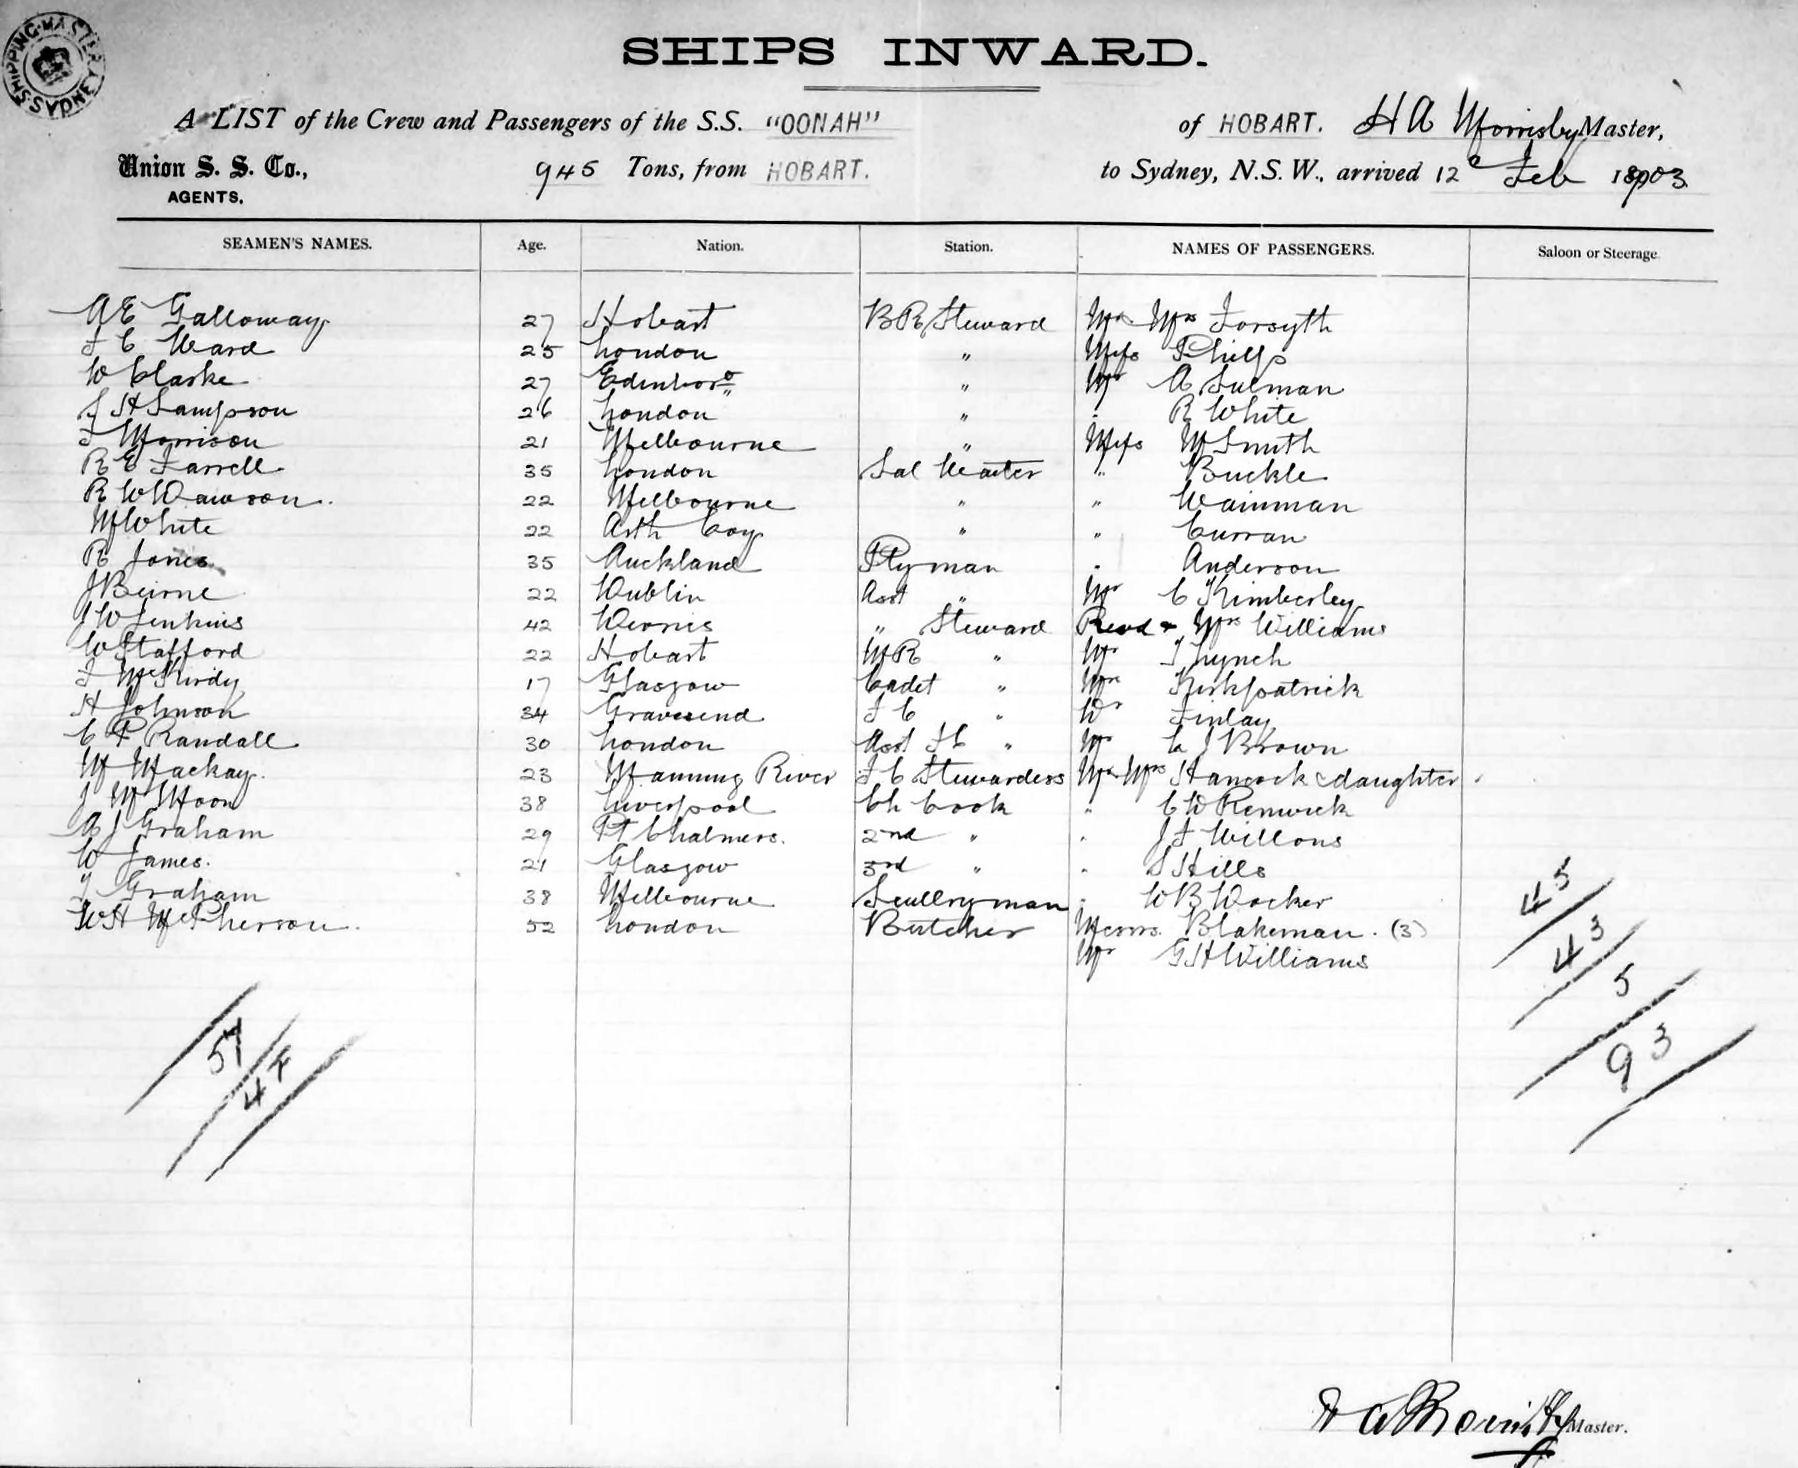 SHIPPING MASTER SYDNEY
SHIPS INWARD.
A LIST of the Crew and Passengers of the S.S. "OONAH" of HOBART. H A Morrisby Master,
Union S. S. Co., AGENTS. 945 Tons, from HOBART. to Sydney, N.S.W., arrived 12 Feb 1903
SEAMEN'S NAMES. Age. Nation. Station. NAMES OF PASSENGERS. Saloon or Steerage
A E Galloway 27 Hobart B R Steward Mr Mrs Forsyth
F C Ward 25 London " Miss Phelps
W Clarke 27 Edinboro " Mr A Sulman
J H Sampson 26 London " " R White
F Morrison 21 Melbourne " Miss M Smith
R E Farrell 35 London Sal Waiter " Buckle
R W Dawson 22 Melbourne " " Wainman
M White 22 " " Curran
R Jones 35 Auckland Ptyman " Anderson
J Beirne 22 Dublin Asst " Mr C Kimberley
J W Jenkins 42 " Steward Revd & Mrs Williams
W Stafford 22 Hobart M R " Mr T Lynch
F McKirdy 17 Glasgow Cadet " Mrs Kirkpatrick
H Johnson 34 Gravesend F C " Dr Finlay
C P Randall 30 London Asst F C " Mr C J Brown
M Mackay. 23 Manning River F C Stewardess Mr Mrs Hancock & daughter
J M Moon 38 Liverpool Ch Cook " C W Renwick
A J Graham 29 Pt Chalmers. 2nd " " J F Willons
W James. 21 Glasgow 3rd " " S Hills
Graham 38 Melbourne Scullryman " W B Docker
W H McPherson. 52 London Butcher Messrs. Blakeman. (3)
Mr G H Williams
45
43
5
93
57
47
Master.